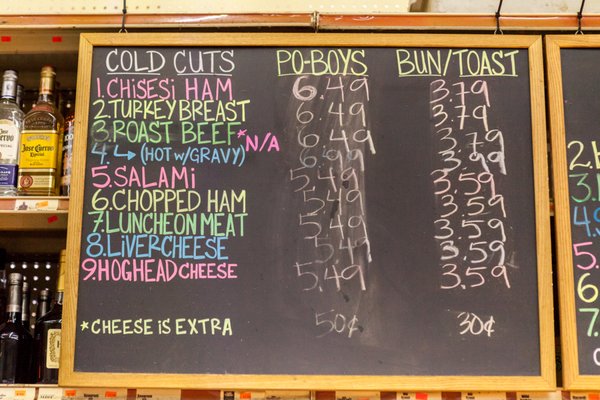 COLD CUTS PO-BOYS BUN/TOAST
1. CHISESI HAM 6.49 3.79
2. TURKEY BREAST 6.49 3.79
3. ROAST BEEF *N/A 6.49 3.79
4. ↳ (HOT W/GRAVY) 6.99 3.99
5. SALAMI 5.49 3.59
6. CHOPPED HAM 5.49 3.59
7. LUNCHEON MEAT 5.49 3.59
8. LIVERCHEESE 5.49 3.59
9. HOGHEAD CHEESE 5.49 3.59
*CHEESE IS EXTRA 50¢ 30¢
Jose Cuervo
ESPECIAL
2.
3.
4.
5.
6.
7.